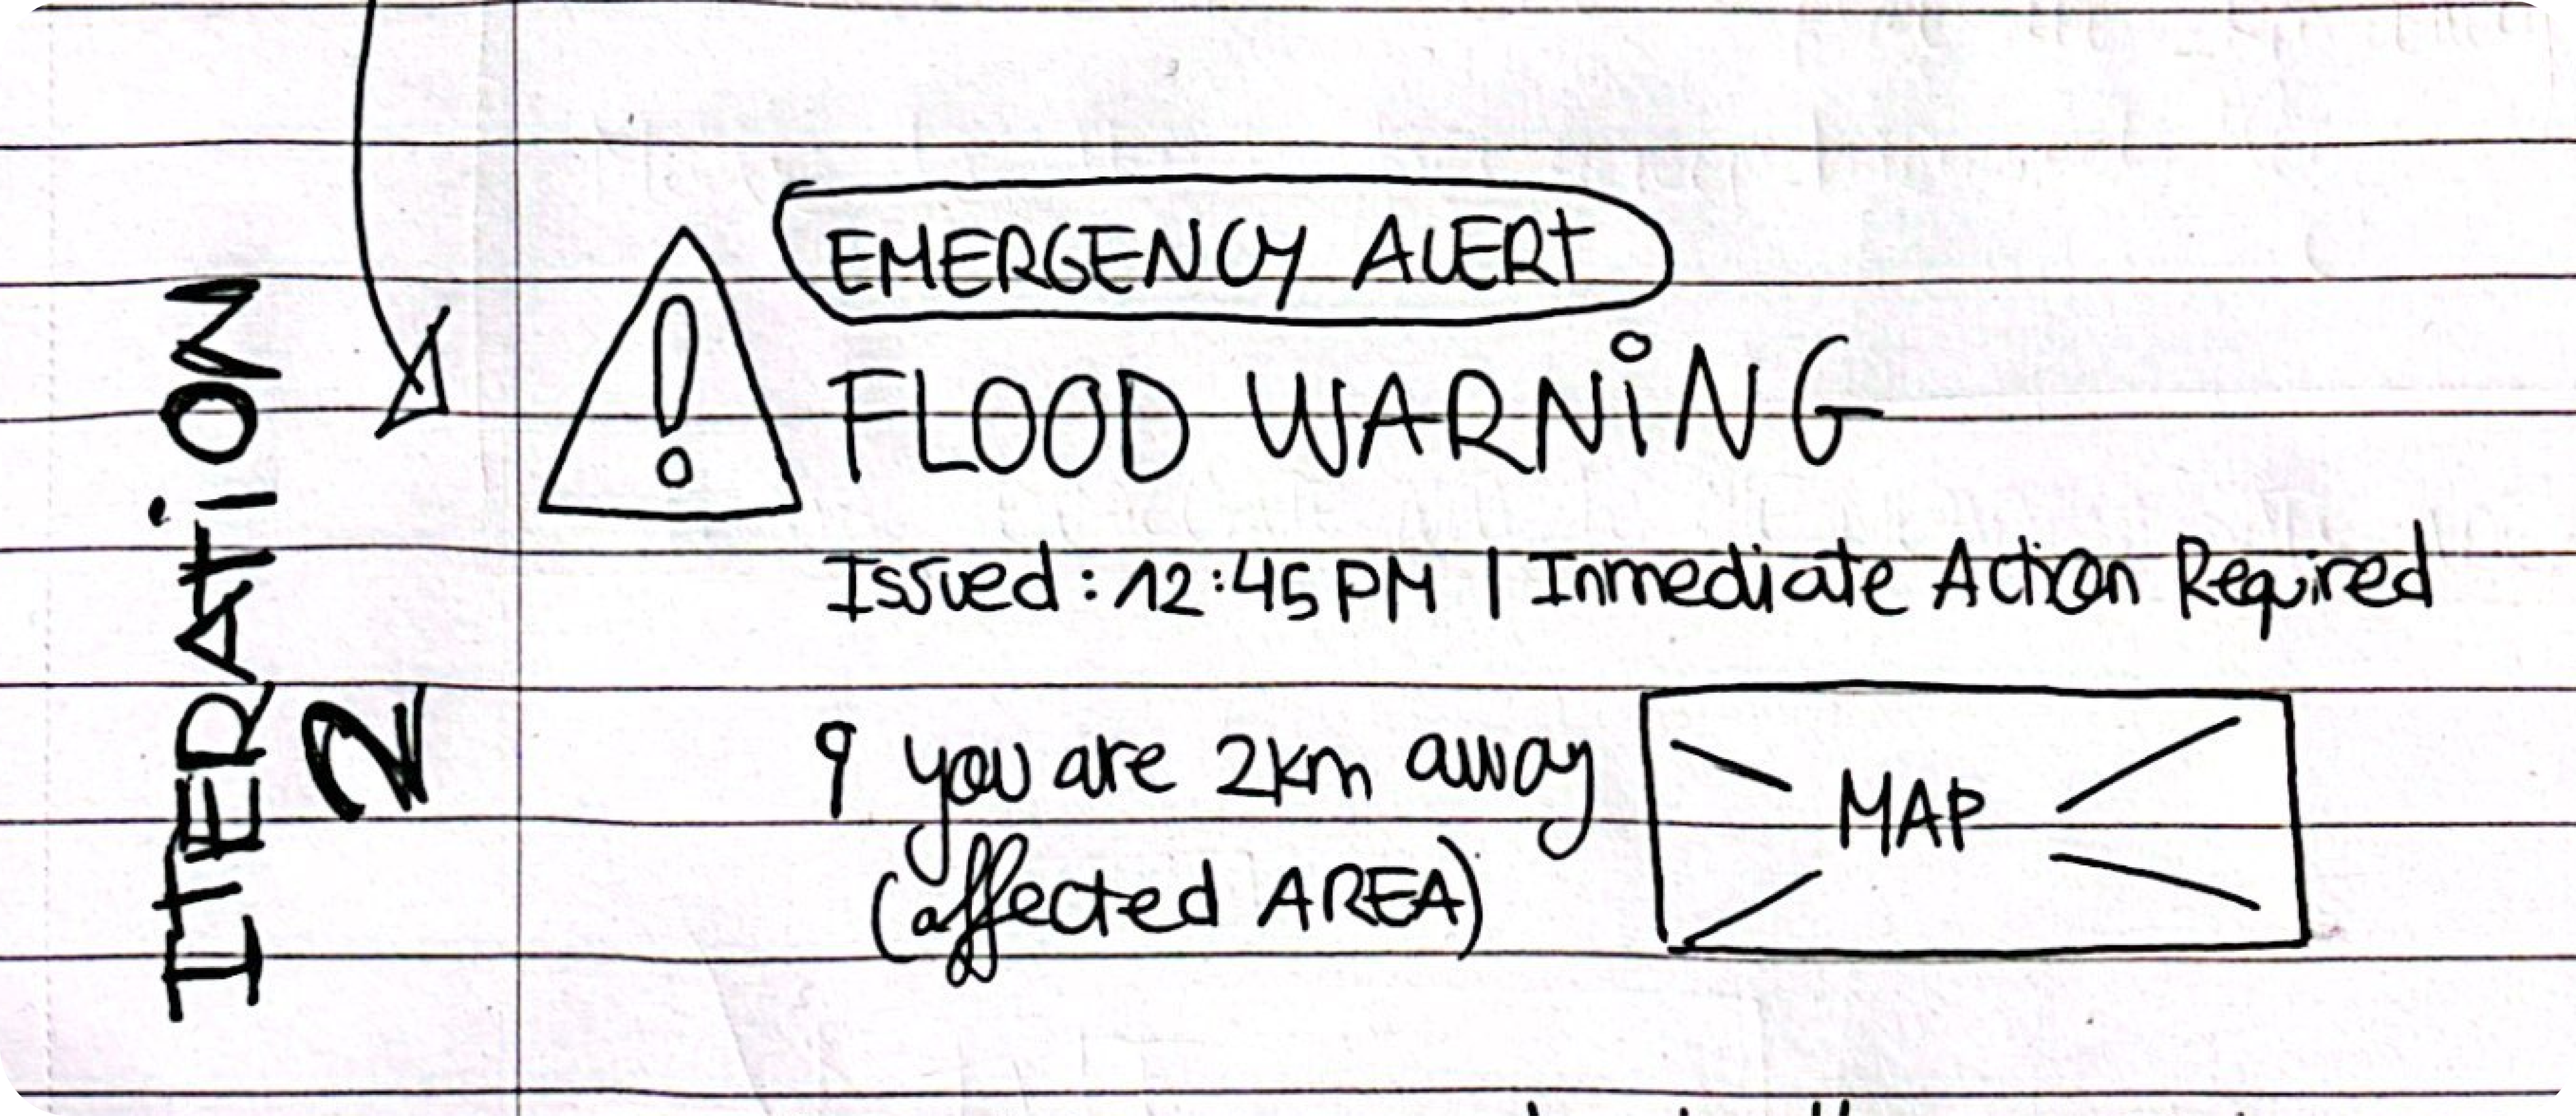 ITERATiON
2
EMERGENCY ALERT
FLOOD WARNiNG
Issued: 12:45 PM | Inmediate Action Required
you are 2km away
(affected AREA)
MAP